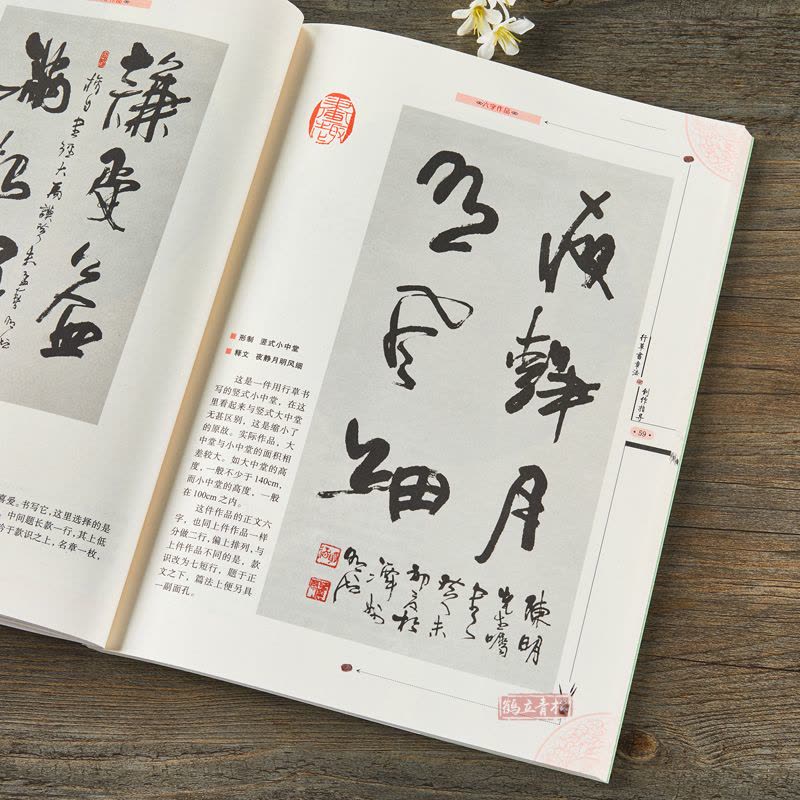 謙受益
喜爱。书写它，这里选择的是
中间题长款一行，其上低
于款识之上，名章一枚，
六字作品
夜靜月
明風細
陳明
先生嘱
書
癸未
■ 形制 竖式小中堂
■ 释文 夜静月明风细
这是一件用行草书
写的竖式小中堂，在这
里看起来与竖式大中堂
无甚区别，这是缩小了
的原故。实际作品，大
中堂与小中堂的面积相
差较大。如大中堂的高
度，一般不少于140cm，
而小中堂的高度，一般
在100cm之内。
这件作品的正文六
字，也同上件作品一样
分做二行，偏上排列，与
上件作品不同的是，款
识改为七短行，题于正
文之下，篇法上便另具
一副面孔。
行草書章法
創作指导
·59·
鹤立青